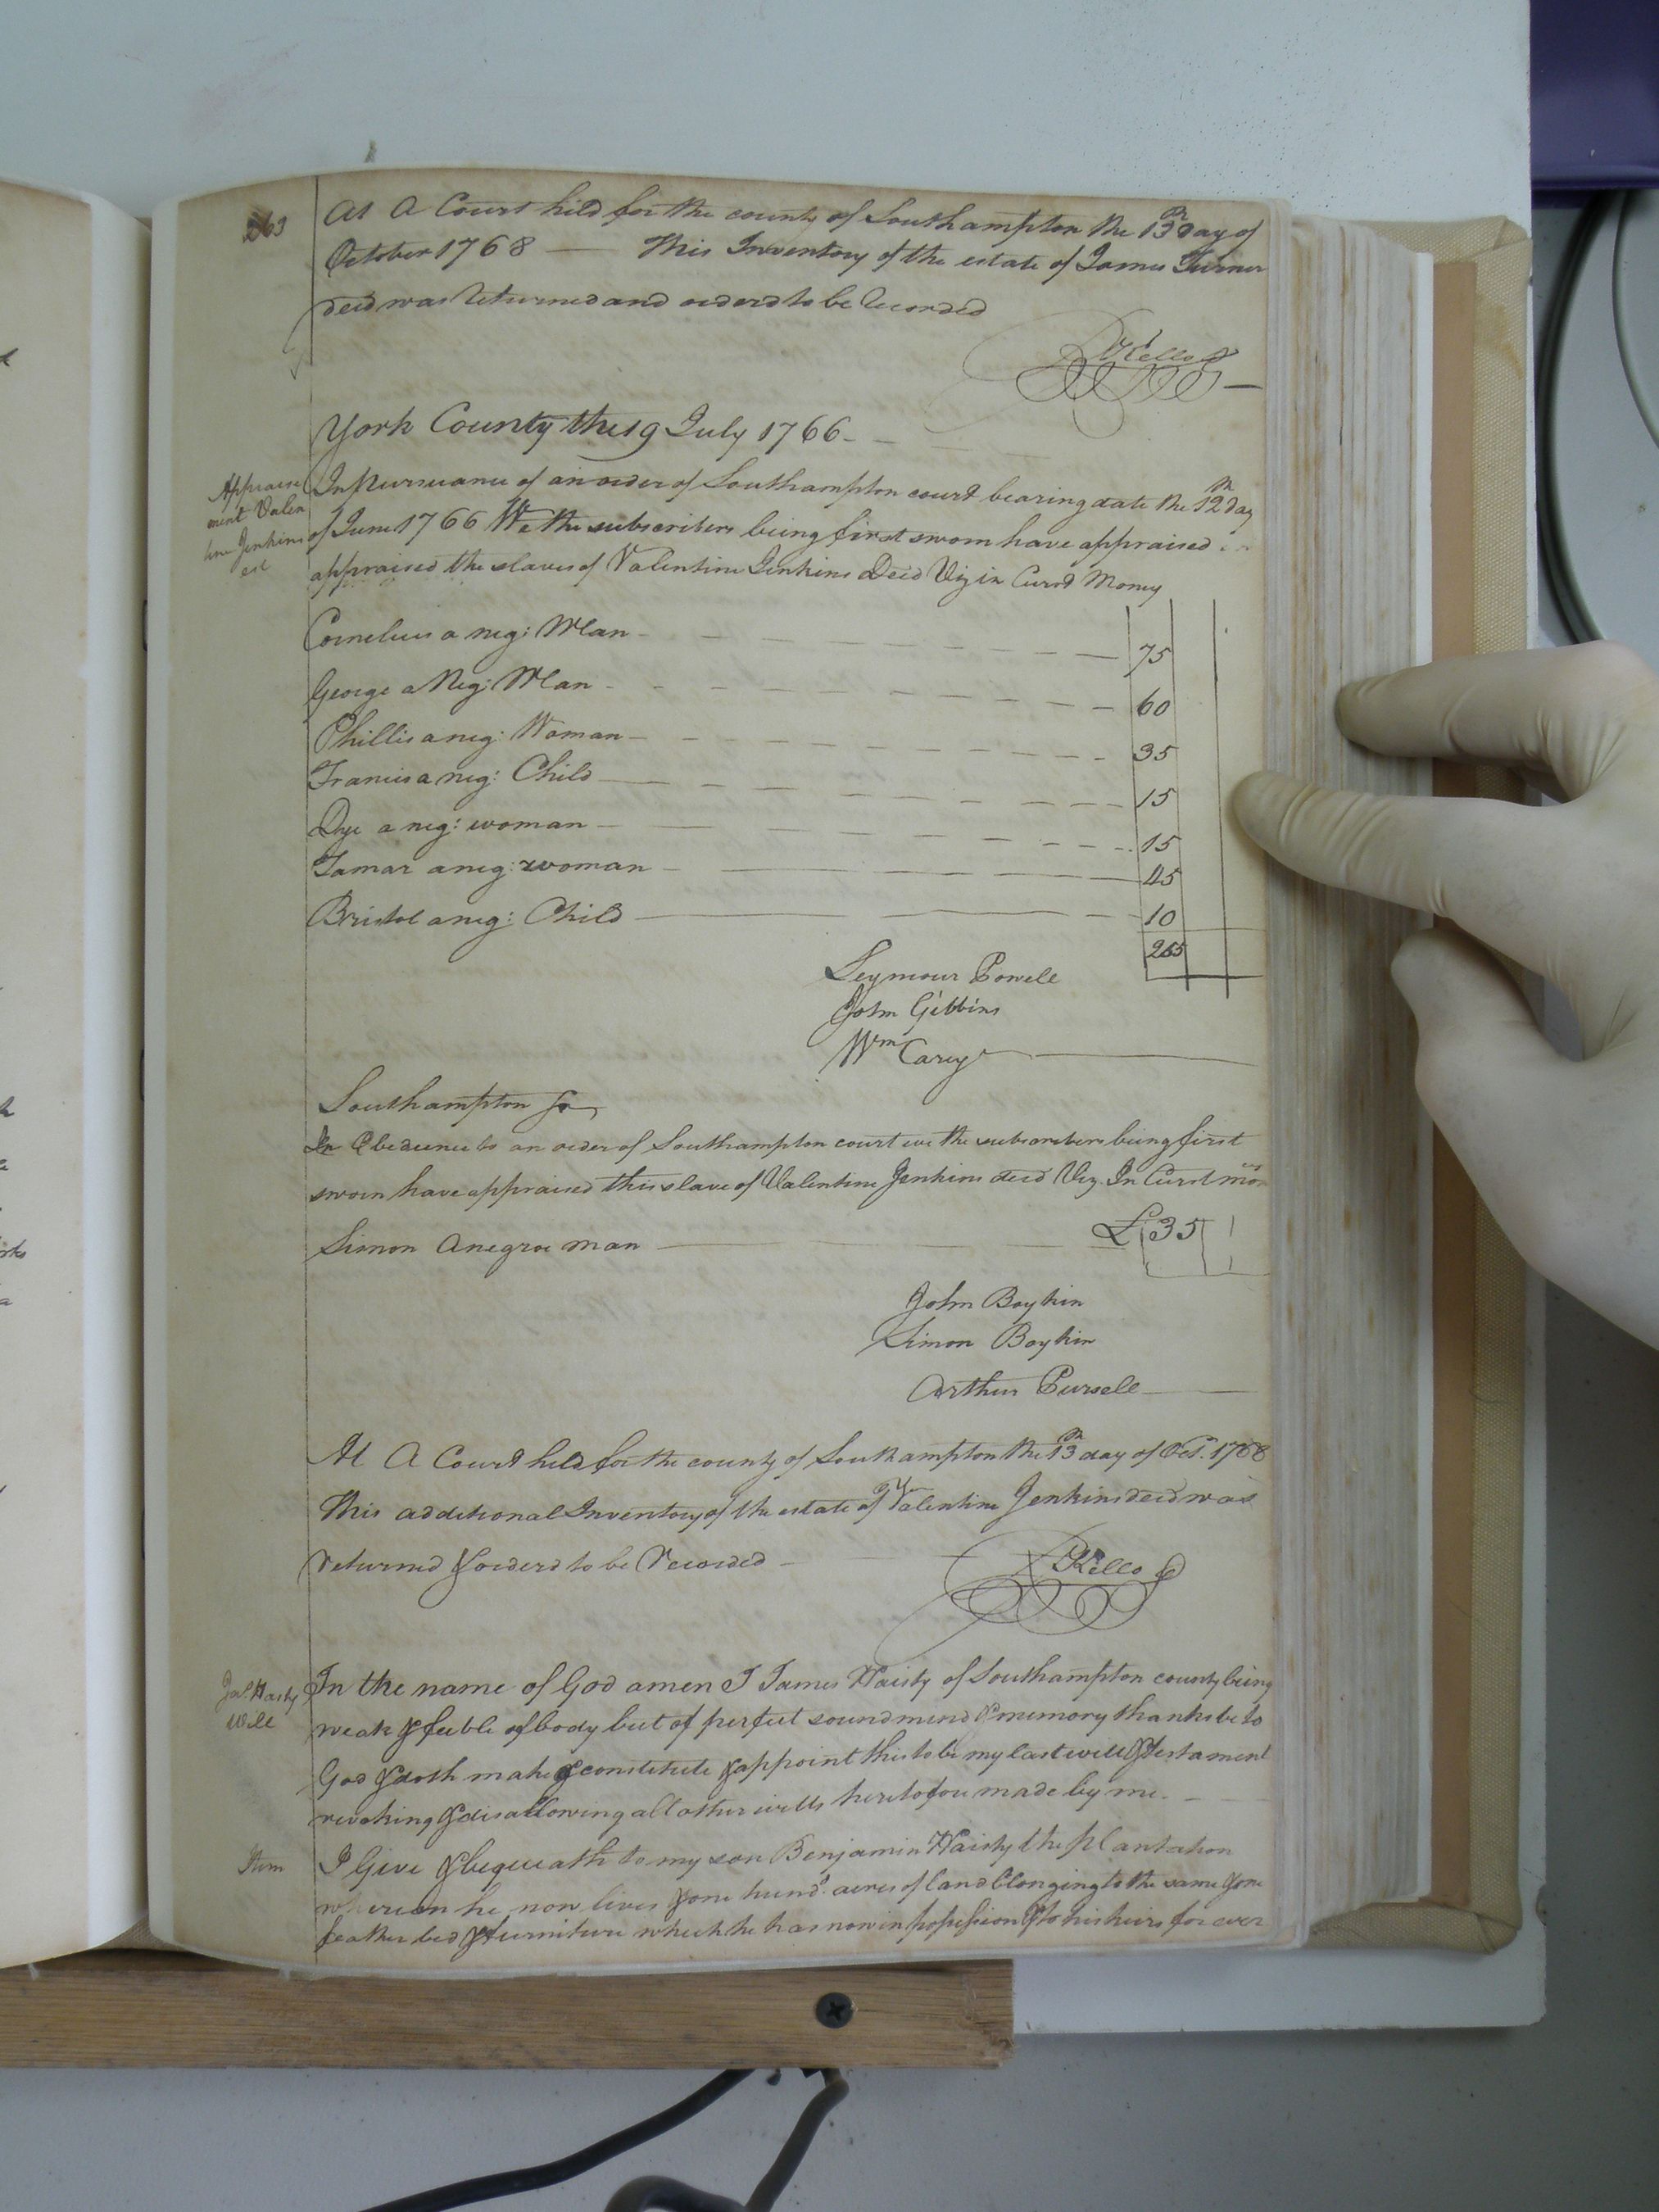 263
At A Court held for the county of Southampton the 13th Day of
October 1768 — This Inventory of the estate of James Turner
decd was Returned and orderd to be Recorded
RKello
York County the 19 July 1766
Appraise
ment Valen
tine Jenkins
est
In Pursuance of an order of Southampton court bearing date the 12th day
of June 1766 We the subscribers being first sworn have appraised
appraised the slaves of Valentine Jenkins Decd Viz in Currt Money
Cornelius a neg: Man 75
George a Neg: Man 60
Phillis a neg: Woman 35
Francis a neg: Child 15
Dye a neg: woman 15
Tamar a neg: woman 45
Bristol a neg: Child 10
265
Seymour Powell
John Gibbins
Wm Carey
Southampton Sc
In Obedience to an order of Southampton court we the subscribers being first
sworn have appraised this slave of Valentine Jenkins decd Viz. In Currt mon
Simon a negroe man £ 35
John Boykin
Simon Boykin
Arthur Pursell
At A Court held for the county of Southampton the 13th day of Oct. 1768
This additional Inventory of the estate of Valentine Jenkins decd was
returned & orderd to be Recorded
RKello
Jas Hasty
Will
In the name of God amen I James Haisty of Southampton county being
weak & feeble of body but of perfect sound mind & memory thanks be to
God & doth make & constitute & appoint this to be my last will & testament
revoking & disallowing all other wills heretofore made by me.
Item
I Give & bequeath to my son Benjamin Haisty the plantation
whereon he now lives & one hund. acres of land blonging to the same & one
feather bed & furniture which he has now in possession & to his heirs for ever